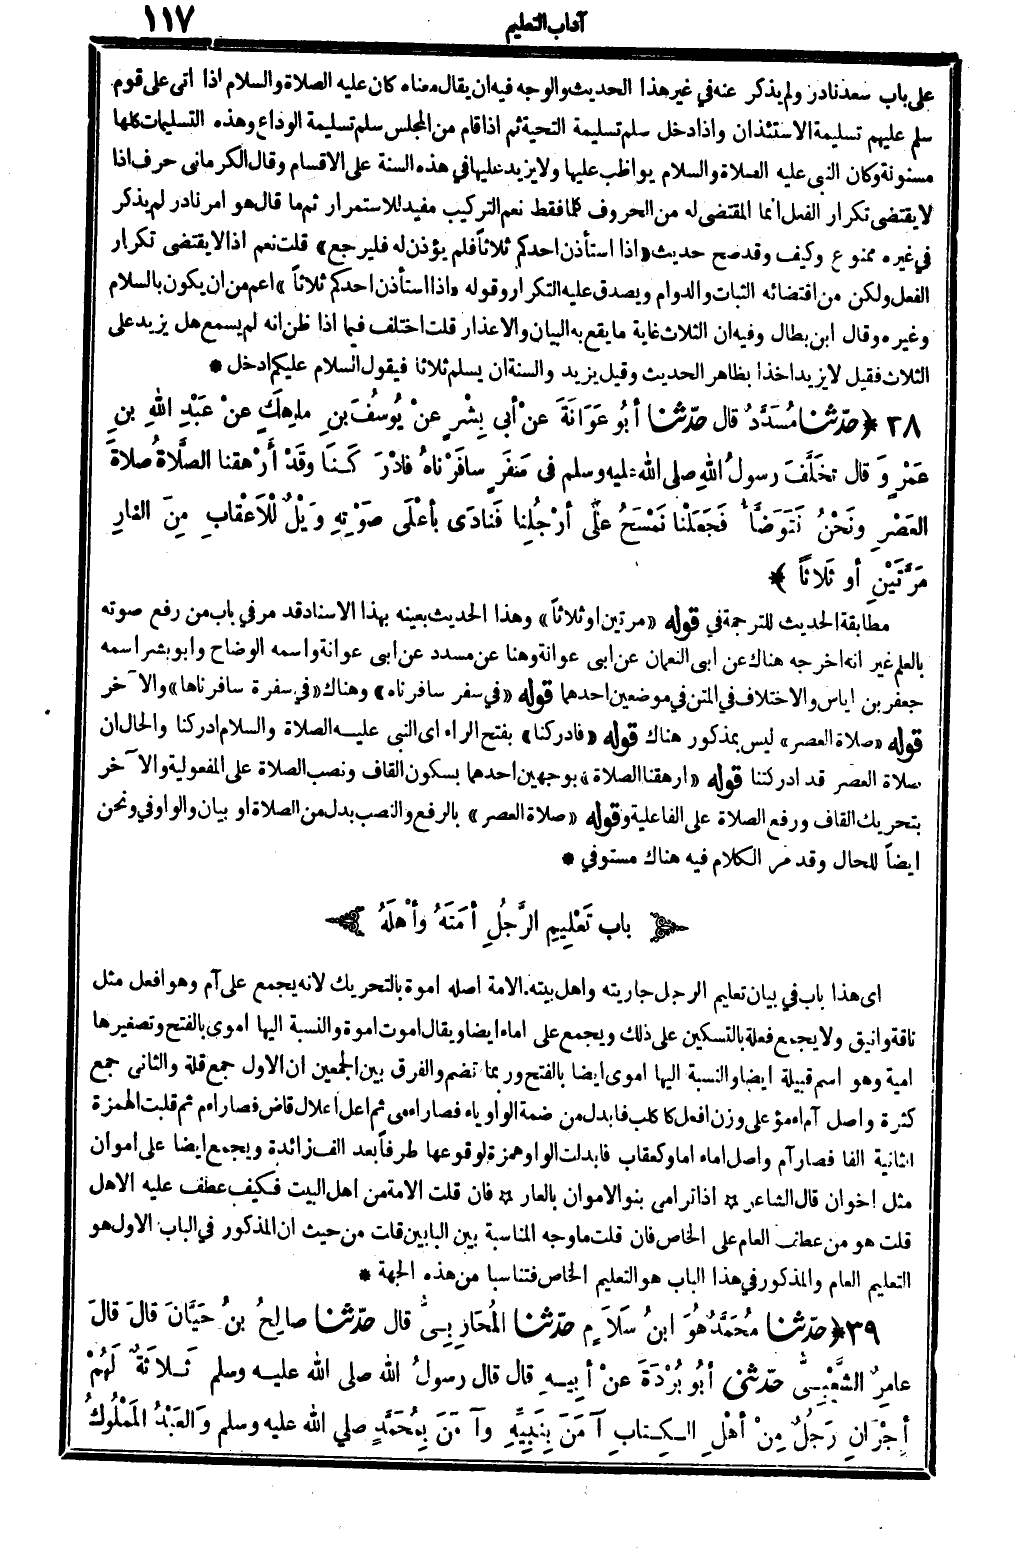 آداب التعليم
١١٧
على باب سعد نادر ولم يذكر عنه في غير هذا الحديث والوجه فيه ان يقال معناه كان عليه الصلاة والسلام اذا اتى على قوم
سلم عليهم تسليمة الاستئذان واذا دخل سلم تسليمة التحية ثم اذا قام من المجلس سلم تسليمة الوداع وهذه التسليمات كلها
مسنونة وكان النبي عليه الصلاة والسلام يواظب عليها ولا يزيد عليها في هذه السنة على الاقسام وقال الكرماني حرف اذا
لا يقتضى تكرار الفعل انما المقتضى له من الحروف كلما فقط نعم التركيب مفيد للاستمرار ثم ما قال هو امر نادر لم يذكر
في غيره ممنوع وكيف وقد صح حديث «اذا استأذن احدكم ثلاثاً فلم يؤذن له فليرجع» قلت نعم اذا لا يقتضى تكرار
الفعل ولكن من اقتضائه الثبات والدوام ويصدق عليه التكرار وقوله «اذا استأذن احدكم ثلاثاً» اعم من ان يكون بالسلام
وغيره وقال ابن بطال وفيه ان الثلاث غاية ما يقع به البيان والاعذار قلت اختلف فيما اذا ظن انه لم يسمع هل يزيد على
الثلاث فقيل لا يزيد اخذا بظاهر الحديث وقيل يزيد والسنة ان يسلم ثلاثا فيقول السلام عليكم ادخل *
٣٨ ﴿ حدّثنا مُسَدَّدٌ قال حدّثنا أبُو عَوَانَةَ عَنْ أبي بِشْرٍ عَنْ يُوسُفَ بنِ ماهِكَ عَنْ عَبْدِ اللهِ بنِ
عَمْرٍو قال تَخَلَّفَ رسولُ اللهِ صلى الله عليه وسلم في سَفَرٍ سافَرْناهُ فادْرَكَنَا وقَدْ أَرْهقنا الصَّلاةُ صلاةَ
العَصْرِ ونَحْنُ نَتَوَضَّأُ فَجَعَلْنا نَمْسَحُ علَى أرْجُلِنا فَنادَى بأعْلَى صَوْتِهِ وَيْلٌ لْلَاعْقابِ مِنَ النارِ
مَرَّتَيْنِ أو ثَلاثاً ﴾
مطابقة الحديث للترجمة في قوله «مرتين او ثلاثاً» وهذا الحديث بعينه بهذا الاسناد قد مر في باب من رفع صوته
بالعلم غير انه اخرجه هناك عن ابى النعمان عن ابى عوانة وهنا عن مسدد عن ابى عوانة واسمه الوضاح وابو بشر اسمه
جعفر بن اياس والاختلاف في المتن في موضعين احدهما قوله «في سفر سافرناه» وهناك «في سفرة سافرناها» والآخر
قوله «صلاة العصر» ليس بمذكور هناك قوله «فادركنا» بفتح الراء اى النبى عليه الصلاة والسلام ادركنا والحال ان
صلاة العصر قد ادركتنا قوله «ارهقنا الصلاة» بوجهين احدهما بسكون القاف ونصب الصلاة على المفعولية والآخر
بتحريك القاف ورفع الصلاة على الفاعلية وقوله «صلاة العصر» بالرفع والنصب بدل من الصلاة او بيان والواو في ونحن
ايضاً للحال وقد مر الكلام فيه هناك مستوفي *
باب تَعْلِيمِ الرَّجُلِ أمَتَهُ وأهْلَهُ
اى هذا باب في بيان تعليم الرجل جاريته واهل بيته. الامة اصله اموة بالتحريك لانه يجمع على آم وهو افعل مثل
ناقة وانيق ولا يجمع فعلة بالتسكين على ذلك ويجمع على اماء ايضا ويقال اموت اموة والنسبة اليها اموى بالفتح وتصغيرها
امية وهو اسم قبيلة ايضا والنسبة اليها اموى ايضا بالفتح وربما تضم والفرق بين الجمعين ان الاول جمع قلة والثانى جمع
كثرة واصل آم اءمؤ على وزن افعل كاكلب فابدل من ضمة الواو ياء فصار اءمى ثم اعل اعلال قاض فصار اءم ثم قلبت الهمزة
الثانية الفا فصار آم واصل اماء اماو كعقاب فابدلت الواو همزة لوقوعها طرفاً بعد الف زائدة ويجمع ايضا على اموان
مثل اخوان قال الشاعر * اذا ترامى بنو الاموان بالعار * فان قلت الامة من اهل البيت فكيف عطف عليه الاهل
قلت هو من عطف العام على الخاص فان قلت ما وجه المناسبة بين البابين قلت من حيث ان المذكور في الباب الاول هو
التعليم العام والمذكور في هذا الباب هو التعليم الخاص فتناسبا من هذه الجهة *
٣٩ ﴿ حدّثنا مُحَمَّدٌ هُوَ ابنُ سَلَامٍ حدّثنا المُحَارِبِيُّ قال حدّثنا صالِحُ بنُ حَيَّانَ قالَ قالَ
عامِرٌ الشَّعْبِيُّ حدّثني أبُو بُرْدَةَ عَنْ أبِيهِ قال قال رسولُ الله صلى الله عليه وسلم ثَلاثَةٌ لَهُمْ
أجْرَانِ رَجُلٌ مِنْ أهْلِ الكِتابِ آمَنَ بِنَبِيِّهِ وآمَنَ بِمُحَمَّدٍ صلي الله عليه وسلم والعَبْدُ المَمْلُوكُ